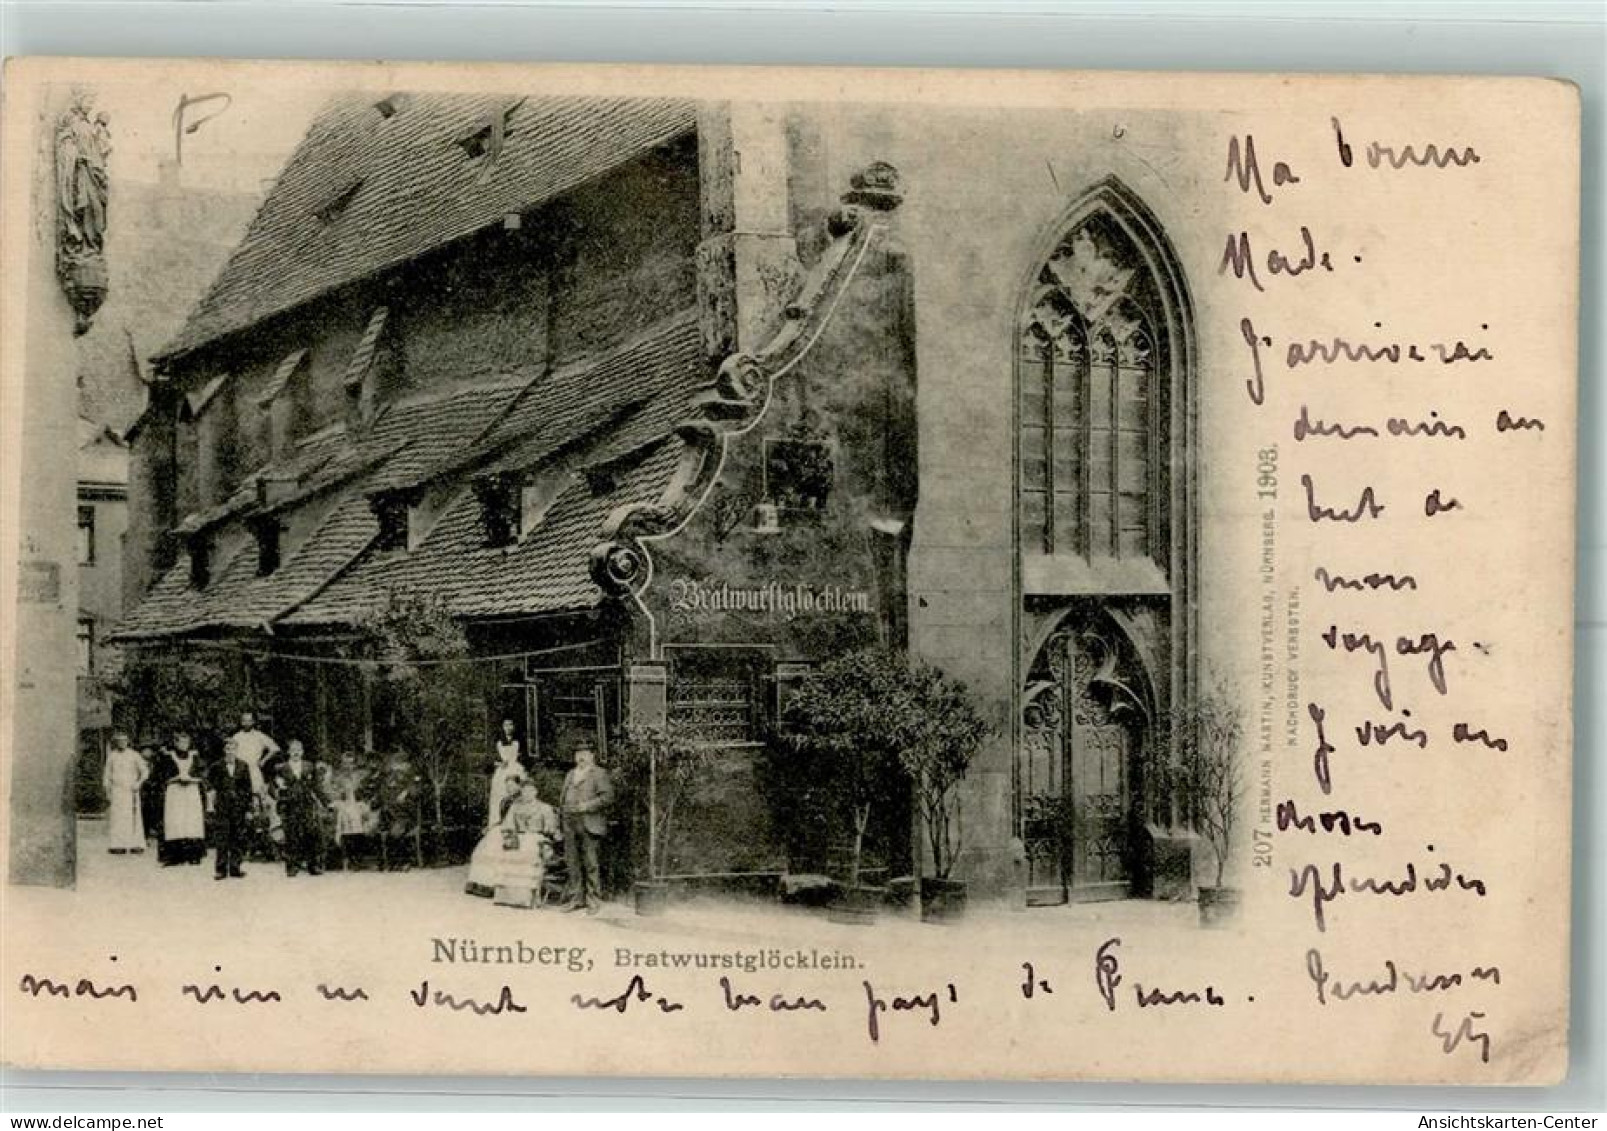 Ma bonne
Made.
J'arriverai
demain au
but de
mon
voyage.
Je vois des
choses
splendides
mais rien ne vaut notre beau pays de France. Tendresses
Bratwurstglöcklein
Nürnberg, Bratwurstglöcklein.
207 HERMANN MARTIN, KUNSTVERLAG, NÜRNBERG. 1903.
NACHDRUCK VERBOTEN.
Ansichtskarten-Center